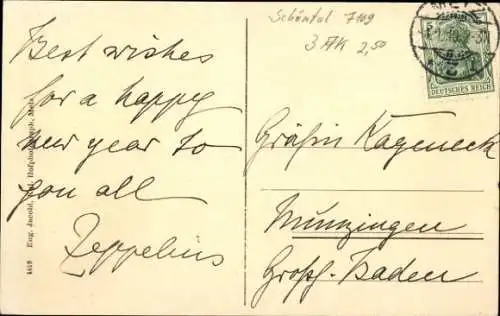 Best wishes
for a happy
new year to
you all
Zeppelins
Schöntal 7109
3 AK 2,50
5
DEUTSCHES REICH
Gräfin Kageneck
Munzingen
Großh. Baden
4819 Eug. Jacobi, Hofphotograph, Metz